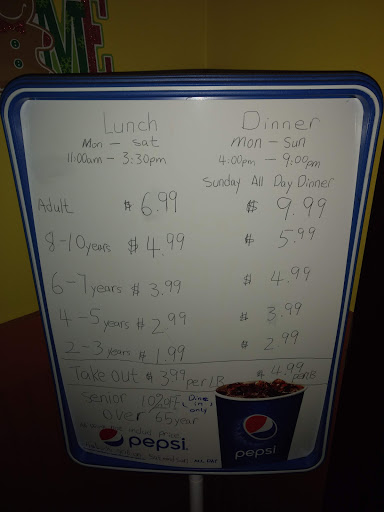 ME
Lunch Dinner
Mon - Sat Mon - Sun
11:00am - 3:30pm 4:00pm - 9:00pm
Sunday All Day Dinner
Adult $6.99 $9.99
8-10years $4.99 $5.99
6-7years $3.99 $4.99
4-5years $2.99 $3.99
2-3years $1.99 $2.99
Take out $3.99 perLB $4.99 perLB
Senior 10%OFF Dine in only
over 65year
pepsi.
pepsi